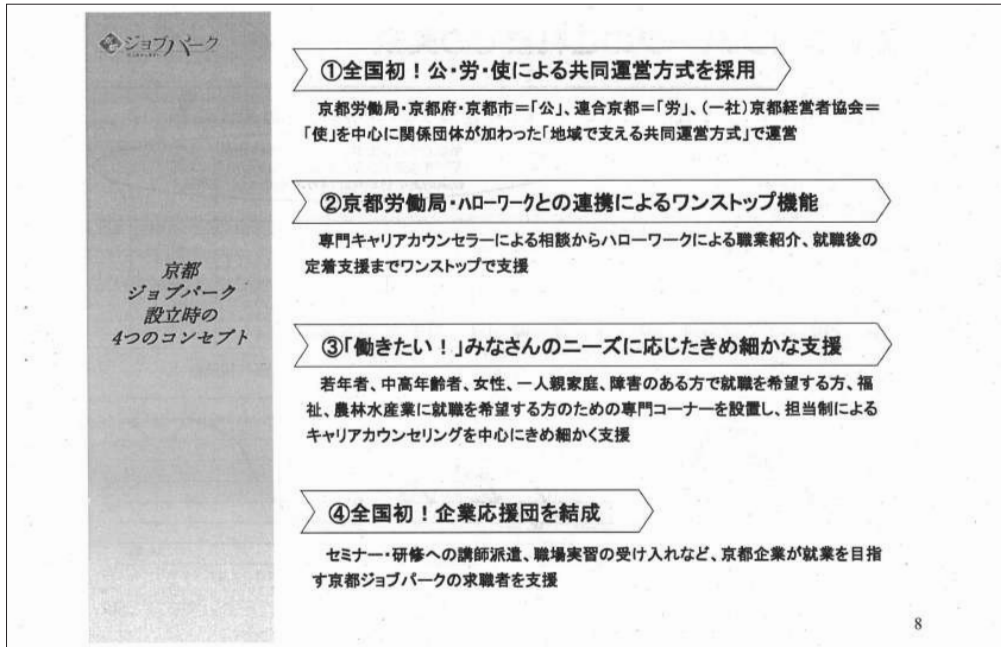 ジョブパーク
京都
ジョブパーク
設立時の
4つのコンセプト
①全国初！公・労・使による共同運営方式を採用
京都労働局・京都府・京都市＝「公」、連合京都＝「労」、(一社)京都経営者協会＝
「使」を中心に関係団体が加わった「地域で支える共同運営方式」で運営
②京都労働局・ﾊﾛｰﾜｰｸとの連携によるワンストップ機能
専門キャリアカウンセラーによる相談からハローワークによる職業紹介、就職後の
定着支援までワンストップで支援
③「働きたい！」みなさんのニーズに応じたきめ細かな支援
若年者、中高年齢者、女性、一人親家庭、障害のある方で就職を希望する方、福
祉、農林水産業に就職を希望する方のための専門コーナーを設置し、担当制による
キャリアカウンセリングを中心にきめ細かく支援
④全国初！企業応援団を結成
セミナー・研修への講師派遣、職場実習の受け入れなど、京都企業が就業を目指
す京都ジョブパークの求職者を支援
8